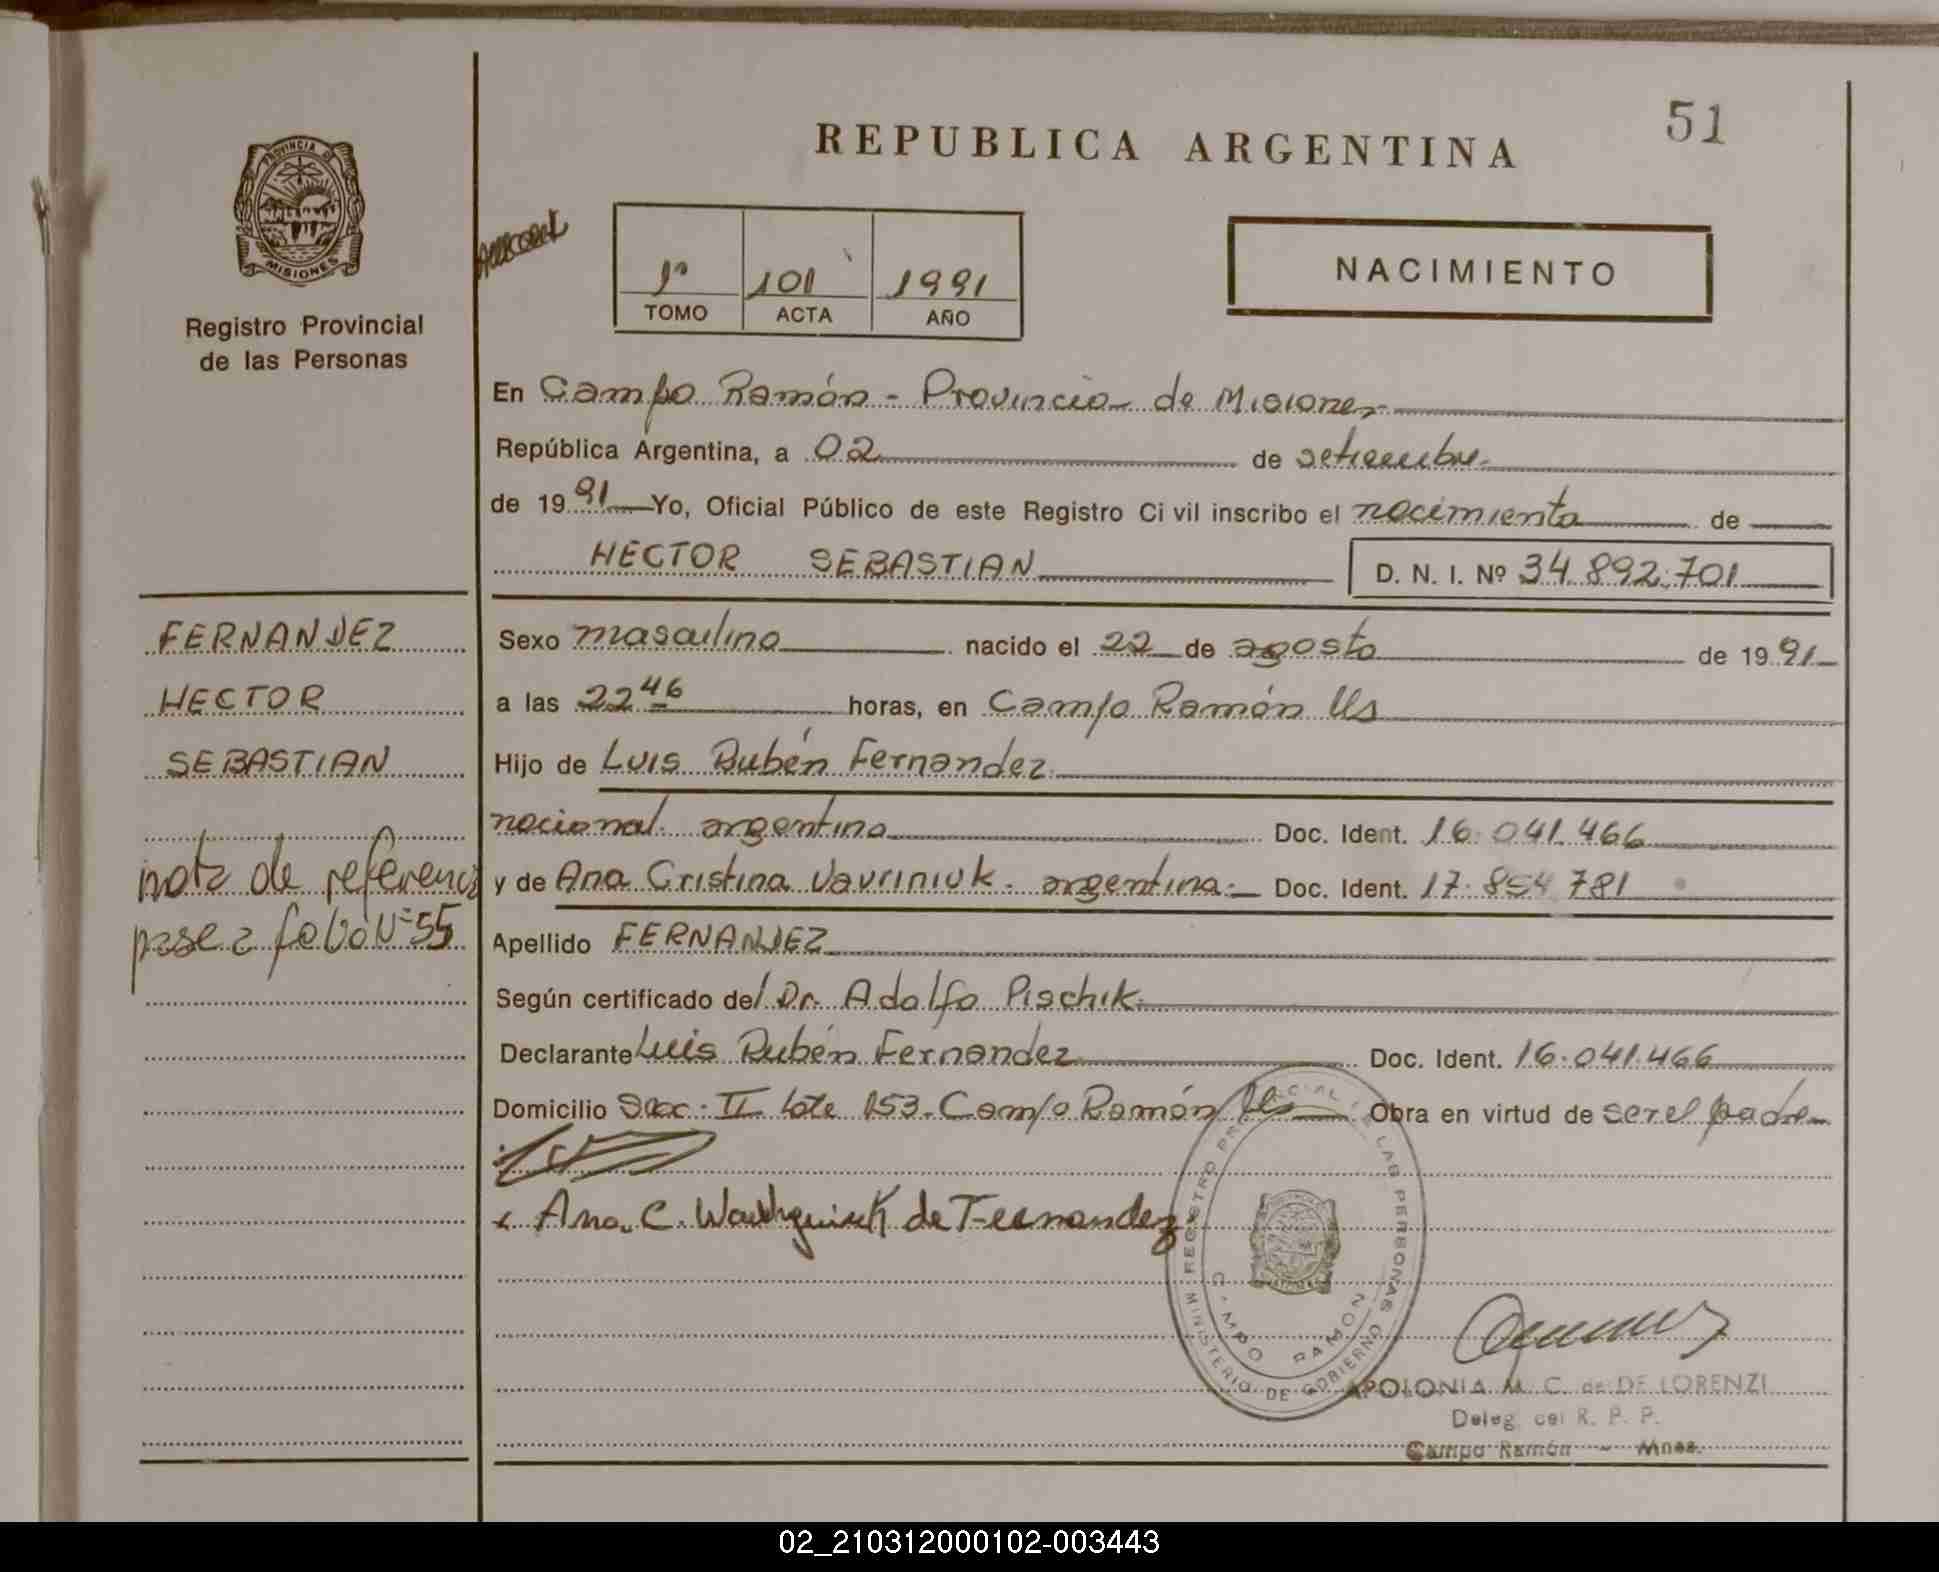 51
REPUBLICA ARGENTINA
PROVINCIA DE
MISIONES
Registro Provincial
de las Personas
1º 101 1991
TOMO ACTA AÑO
NACIMIENTO
En Campo Ramón - Provincia de Misiones
República Argentina, a 02 de setiembre
de 1991 Yo, Oficial Público de este Registro Civil inscribo el nacimiento de
HECTOR SEBASTIAN D. N. I. Nº 34.892.701
FERNANDEZ
HECTOR
SEBASTIAN
nota de referencia
pase a folio Nº 55
Sexo masculino nacido el 22 de agosto de 1991
a las 22 46 horas, en Campo Ramón Ms
Hijo de Luis Rubén Fernandez
nacional. argentino Doc. Ident. 16.041.466
y de Ana Cristina Vavriniuk. argentina Doc. Ident. 17.854.781
Apellido FERNANDEZ
Según certificado del Dr. Adolfo Pischik
Declarante Luis Rubén Fernandez Doc. Ident. 16.041.466
Domicilio Secc. II Lote 153. Campo Ramón Ms Obra en virtud de ser el padre
Ana. C. de Fernandez
MINISTERIO DE GOBIERNO REGISTRO PROVINCIAL DE LAS PERSONAS
CAMPO RAMON
APOLONIA M. C. de DE LORENZI
Deleg. del R. P. P.
Campo Ramón - Mnes.
02_210312000102-003443